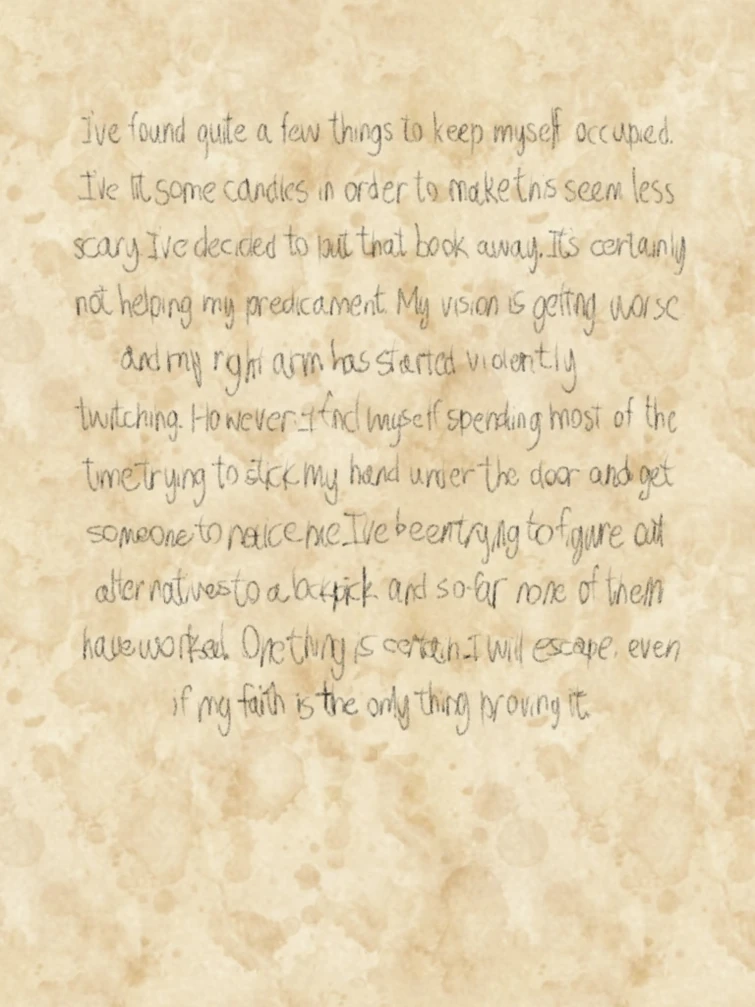 I've found quite a few things to keep myself occupied.
I've lit some candles in order to make this seem less
scary. I've decided to put that book away. It's certainly
not helping my predicament. My vision is getting worse
and my right arm has started violently
twitching. However, I find myself spending most of the
time trying to stick my hand under the door and get
someone to notice me. I've been trying to figure out
alternatives to a lockpick and so far none of them
have worked. One thing is certain. I will escape, even
if my faith is the only thing proving it.